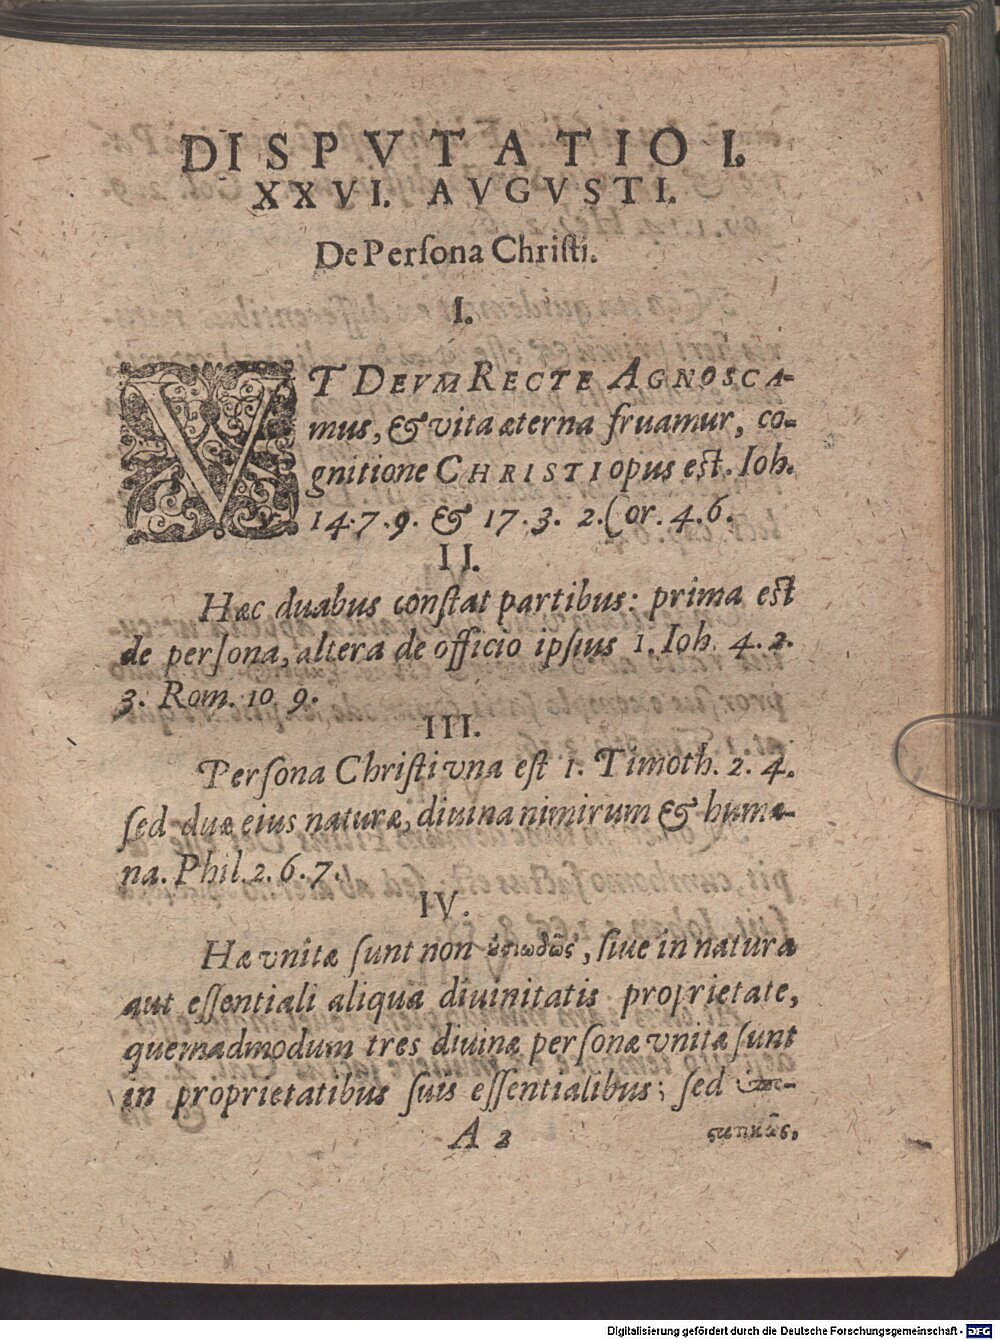 DISPVTATIO I.
XXVI. AVGVSTI.
De Persona Christi.
I.
VT DEVM RECTE AGNOSCA-
mus, & vita æterna fruamur, co-
gnitione CHRISTI opus est. Ioh.
14. 7. 9. & 17. 3. 2. Cor. 4. 6.
II.
Hæc duabus constat partibus: prima est
de persona, altera de officio ipsius 1. Ioh. 4. 2.
3. Rom. 10. 9.
III.
Persona Christi vna est 1. Timoth. 2. 4.
sed duæ eius naturæ, diuina nimirum & huma-
na. Phil. 2. 6. 7.
IV.
Hæ vnitæ sunt non ὀσιωδῶς, siue in natura
aut essentiali aliqua diuinitatis proprietate,
quemadmodum tres diuinæ personæ vnitæ sunt
in proprietatibus suis essentialibus; sed
A 2
Digitalisierung gefördert durch die Deutsche Forschungsgemeinschaft - DFG